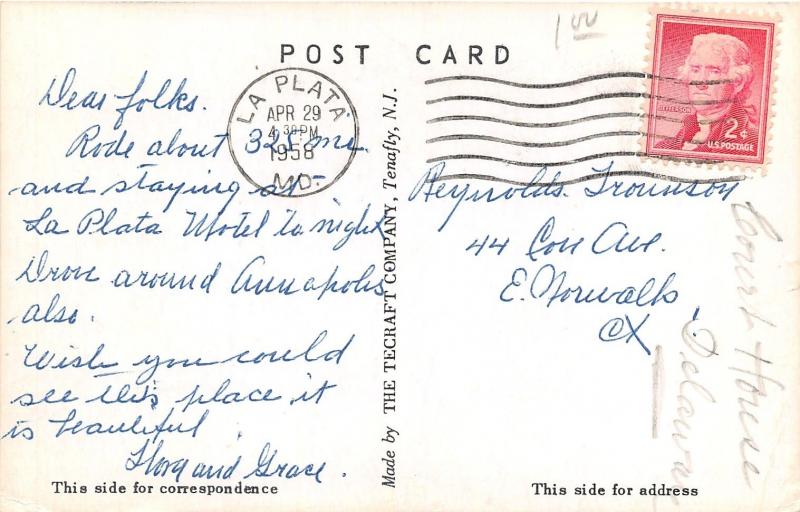 POST CARD
1.00
LA PLATA
APR 29
4 30 PM
1958
MD.
JEFFERSON
2¢
U.S. POSTAGE
Dear folks.
Rode about 325 mi.
and staying at
La Plata Motel to night
Drove around Annapolis
also.
Wish you could
see this place, it
is beautiful
and Grace.
This side for correspondence
Made by THE TECRAFT COMPANY, Tenafly, N.J.
Reynolds
44 Con Ave.
E. Norwalk,
Court House
Delaware
This side for address